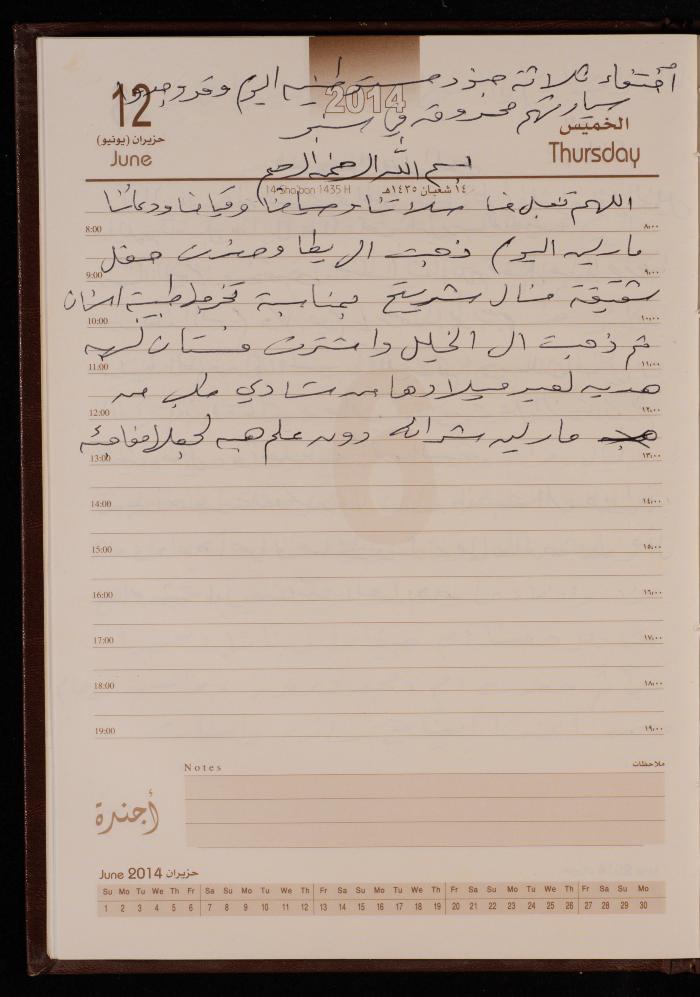 اختفاء ثلاثة جنود مستوطنين اليوم وقد وجدوا
سيارتهم محروقة في
2014
12
حزيران (يونيو)
June
الخميس
Thursday
بسم الله الرحمن الرحيم
14 Sha'ban 1435 H
١٤ شعبان ١٤٣٥هـ
اللهم تقبل منا صلاتنا وصيامنا وقيامنا ودعائنا
8:00 ٨،٠٠
مارلين اليوم ذهبت الى يطا وحضرت حفل
9:00 ٩،٠٠
شقيقة منال شريتح بمناسبة تخرجها طبيبة اسنان
10:00 ١٠،٠٠
ثم ذهبت ال الخليل واشترت فستان
11:00 ١١،٠٠
هديه لعيد ميلادها من شادي طلب من
12:00 ١٢،٠٠
مارلين شرائه دون علم هبه لجعلها مفاجئه
13:00 ١٣،٠٠
14:00 ١٤،٠٠
15:00 ١٥،٠٠
16:00 ١٦،٠٠
17:00 ١٧،٠٠
18:00 ١٨،٠٠
19:00 ١٩،٠٠
Notes ملاحظات
أجندة
June 2014 حزيران
Su Mo Tu We Th Fr Sa Su Mo Tu We Th Fr Sa Su Mo Tu We Th Fr Sa Su Mo Tu We Th Fr Sa Su Mo
1 2 3 4 5 6 7 8 9 10 11 12 13 14 15 16 17 18 19 20 21 22 23 24 25 26 27 28 29 30